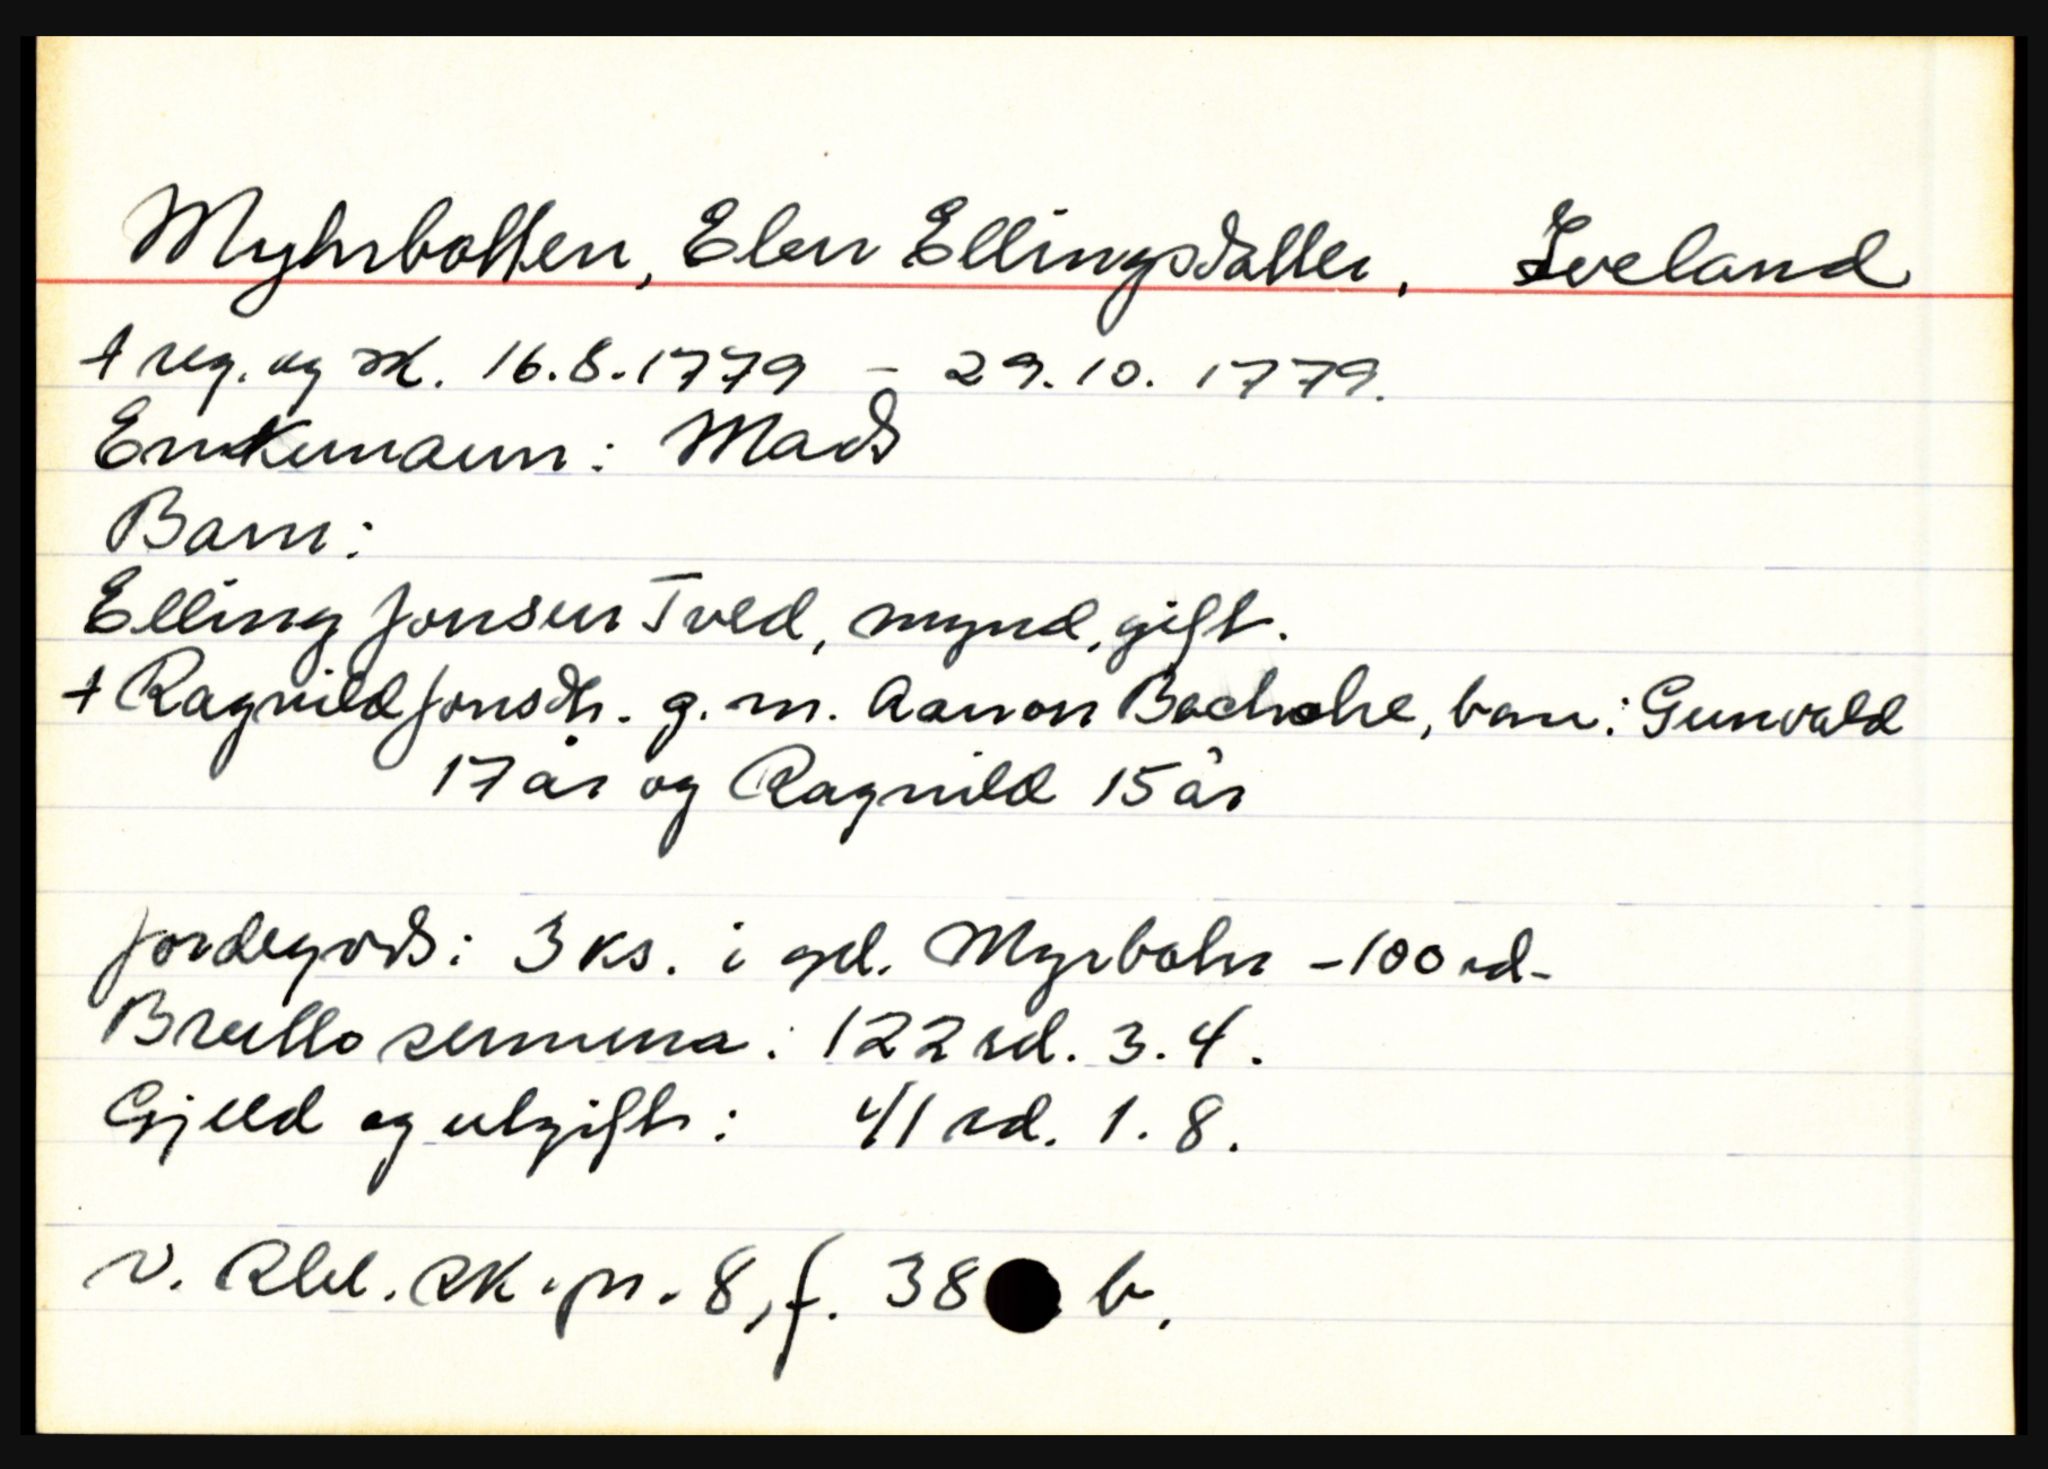 Myhrbotten, Elen Ellingsdatter, Iveland
† reg. og sk. 16.8.1779 - 29.10.1779.
Enkemann: Mads
Barn:
Elling Jonsen Tved, mynd, gift.
† Ragnild Jonsdtr. g.m. Aanon, barn: Gunvald
17 år og Ragnild 15 år
Jordegods: 3 ks. i gd. Myrbotn - 100 rd -
Brutto summa: 122 rd. 3.4.
Gjeld og utgift: 41 rd. 1.8.
V. Rbd. sk.pr. 8, f. 38 b.